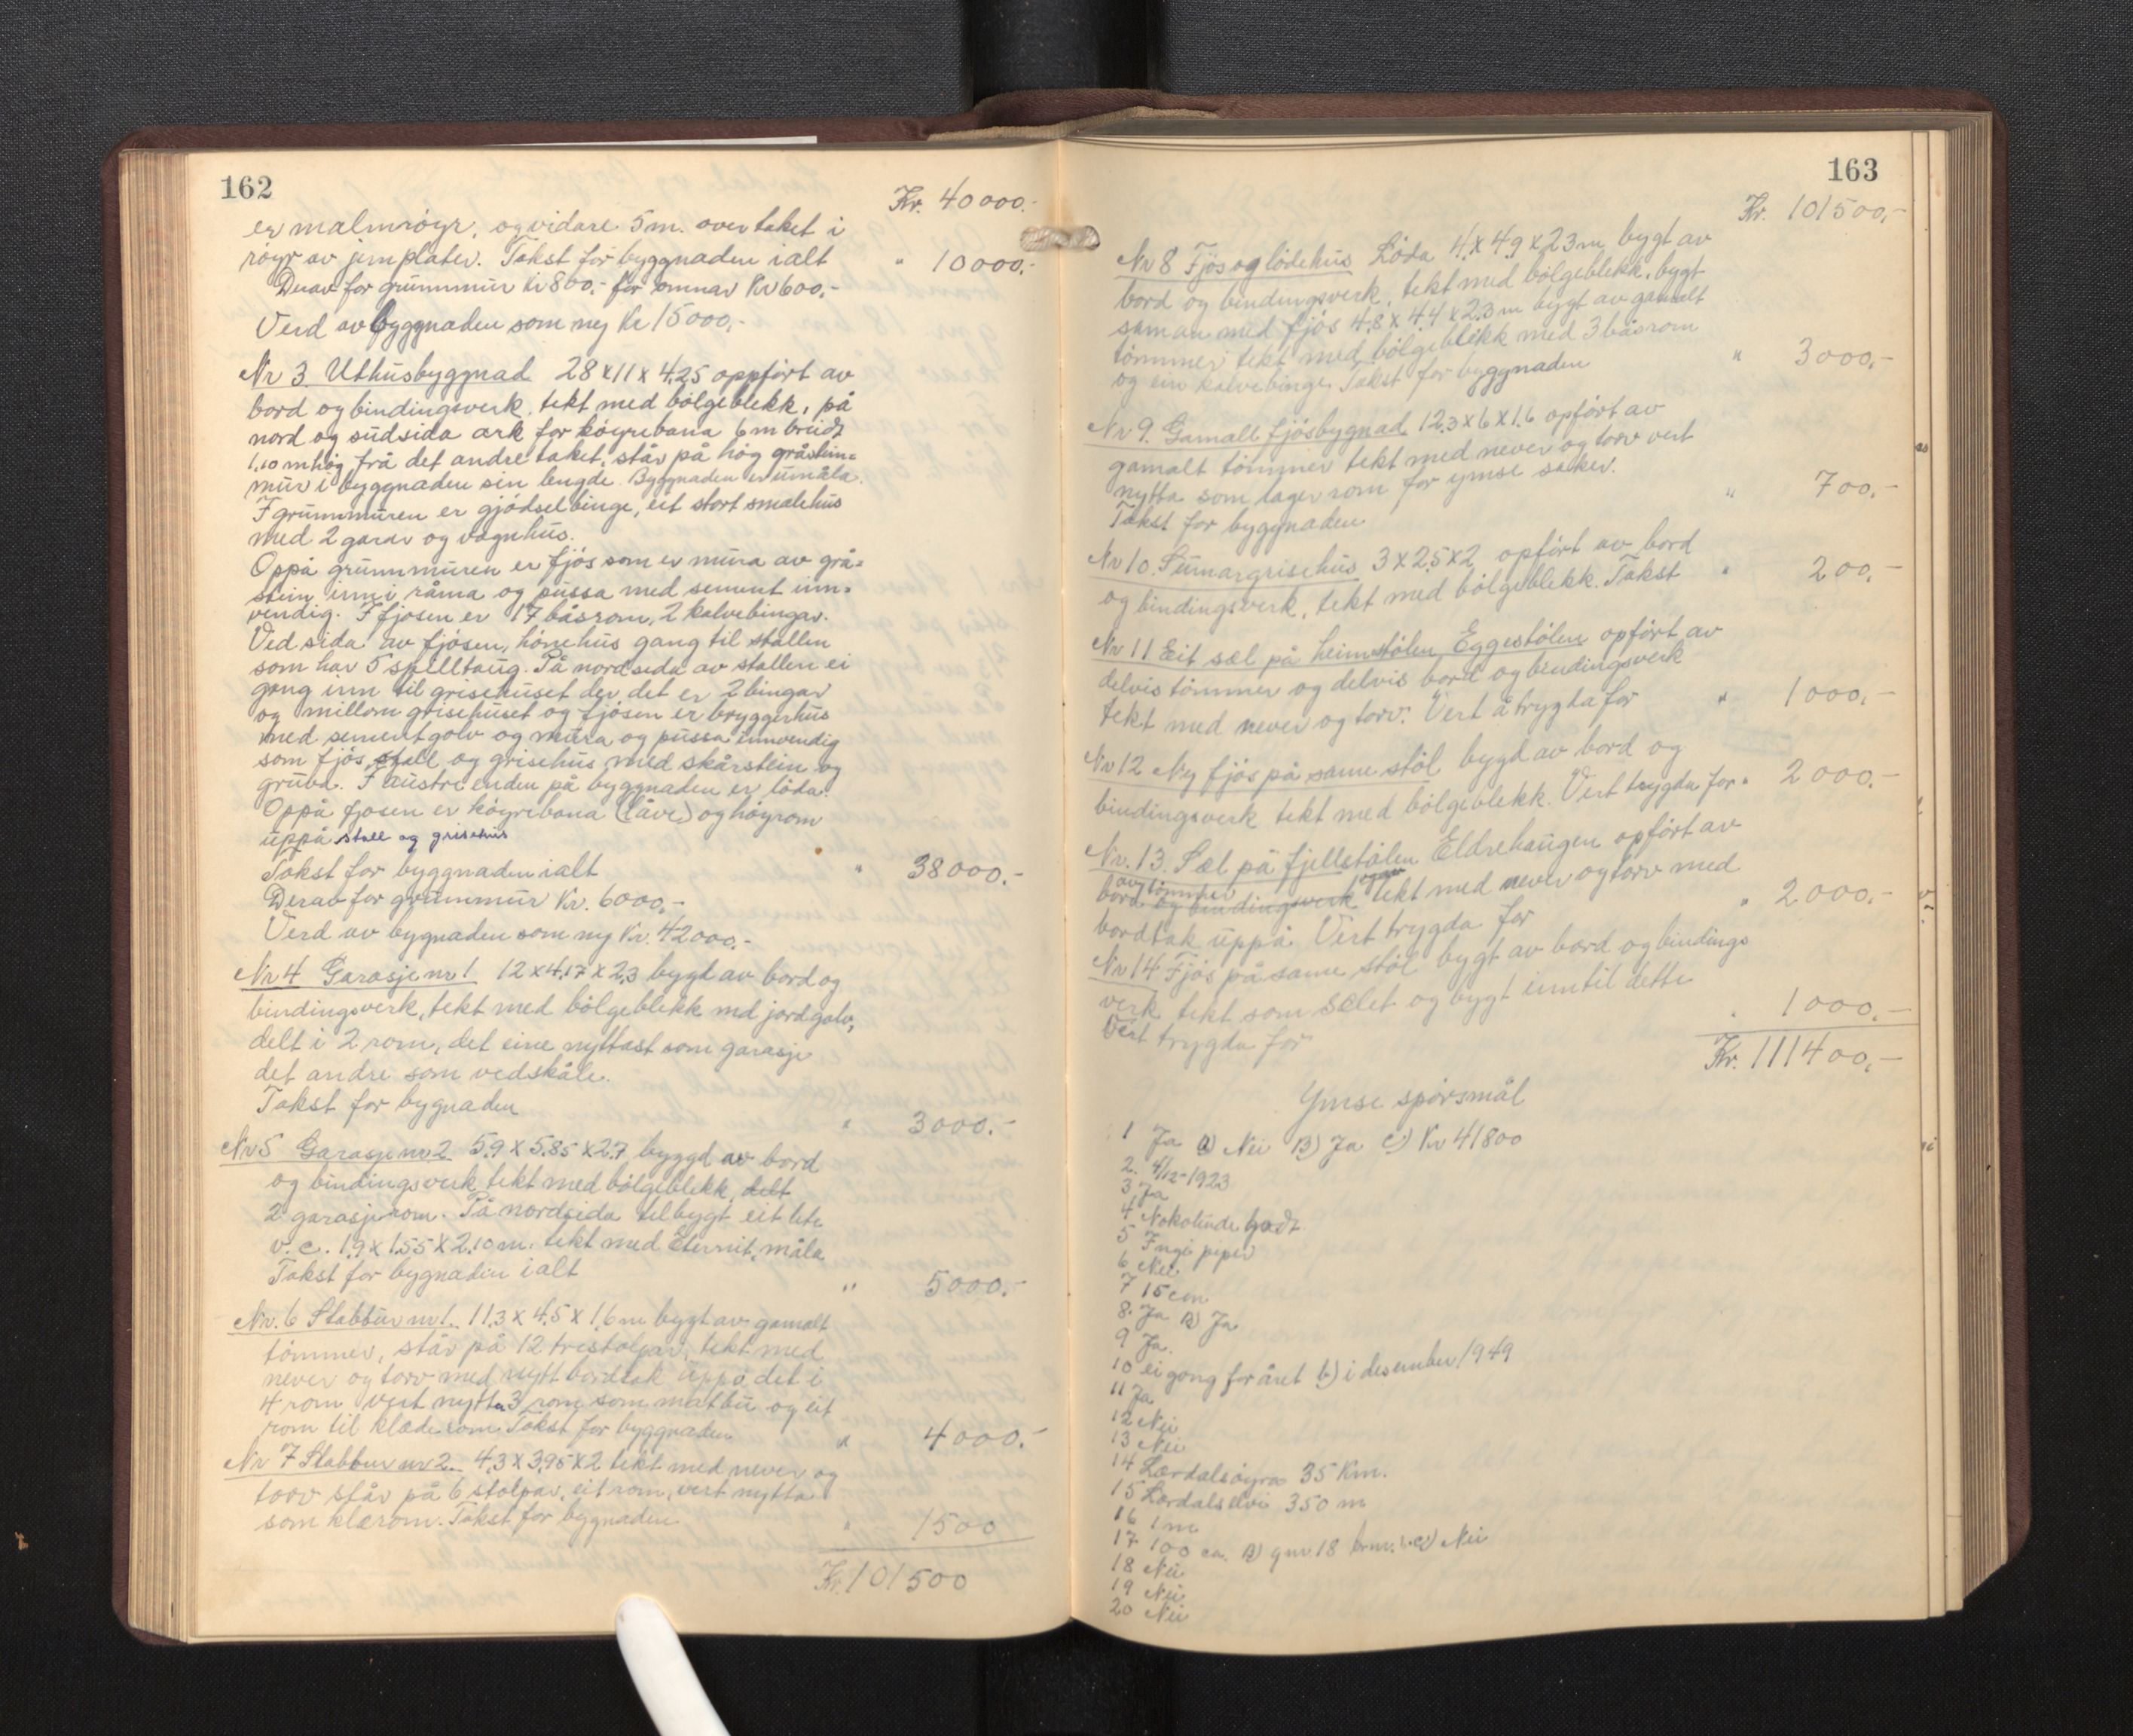 162
Kr. 40000.-
er malmröyr, og vidare 5 m. over taket i
röyr av jernplater. Takst for byggnaden ialt " 10000.-
Derav for grunnmur kr 800,- for omnar Kr 600,-
Verd av byggnaden som ny Kr 15000,-
Nr 3 Uthusbyggnad 28x11x4,25 oppfört av
bord og bindingsverk, tekt med bölgeblekk, på
nord og sudsida ark for höyrebana 6 m breidt
1,10 m hög frå det andre taket, står på hög gråstein=
mur i byggnaden sin lengde. Byggnaden er umåla.
I grunnmuren er gjödselbinge, eit stort smalehus
med 2 garar og vognhus.
Oppå grunnmuren er fjös som er mura av grå=
stein inni råma og pussa med sement inn=
vendig. I fjosen er 17 båsrom, 2 kalvebingar.
Ved sida av fjösen, hönehus gang til stallen
som har 5 spelltaug. På nordsida av stallen ei
gong inn til grisehuset der det er 2 bingar
og millom grisehuset og fjösen er bryggerhus
med sementgolv og mura og pussa innvendig
som fjös, stall og grisehus med skårstein og
grube. I austre enden på byggnaden er löda.
Oppå fjosen er höyrebana (låve) og höyrom
uppå stall og grisehus
Takst for byggnaden ialt " 38000.-
Derav for grunnmur Kr. 6000,-
Verd av bygnaden som ny Kr. 42000.-
Nr 4 Garasje nr 1 12x4,17x2,3 bygd av bord og
bindingsverk, tekt med bölgeblekk md jordgolv,
delt i 2 rom, det eine nyttast som garasje
det andre som vedskåle.
Takst for bygnaden " 3000.-
Nr 5 Garasje nr 2 5,9x5,85x2,7 byggd av bord
og bindingsverk tekt med bölgeblekk, delt
2 garasjerom. På nordsida tilbygt eit lite
v.c. 1,9x1,55x2,10 m. tekt med Eternit, måla
Takst for bygnaden ialt " 5000.-
Nr. 6 Stabbur nr 1. 11,3x4,5x1,6 m bygt av gamalt
tömmer, står på 12 trestolpar, tekt med
never og torv med nytt bordtak uppå delt i
4 rom vert nytta 3 rom som matbu og eit
rom til klæderom. Takst for byggnaden " 4000.-
Nr 7 Stabbur nr 2. 4,3x3,95x2 tekt med never og
torv står på 6 stolpar, eit rom, vert nytta
som klærom. Takst for bygnaden " 1500
Kr. 101500
163
Kr. 101500,-
Nr 8 Fjös og lödehus Löda 4x4,9x2,3 m bygt av
bord og bindingsverk, tekt med bölgeblekk, bygt
saman med fjös 4,8x4,4x2,3 m bygt av gamalt
tömmer tekt med bölgeblekk med 3 båsrom
og ein kalvebinge. Takst for byggnaden " 3000,-
Nr 9. Gamall fjösbygnad 12,3x6x1,6 opfört av
gamalt tömmer tekt med never og torv vert
nytta som lagerrom for ymse saker.
Takst for byggnaden " 700,-
Nr 10. Sumargrisehus 3x2,5x2 opfört av bord
og bindingsverk, tekt med bölgeblekk. Takst " 200,-
Nr 11 Eit sæl på heimstölen Eggestölen opfört av
delvis tömmer og delvis bord og bindingsverk
tekt med never og torv. Vert å trygda for " 1000,-
Nr 12 Ny fjös på same stöl bygd av bord og
bindingsverk tekt med bölgeblekk. Vert trygda for " 2000.-
Nr. 13. Sæl på fjellstölen Eldrehaugen opfört av
av tömmer
bord og bindingsverk tekt med never og torv med
bordtak uppå Vert trygda for " 2000,-
Nr 14 Fjös på same stöl bygt av bord og bindings
verk tekt som sælet og bygt inntil dette
Vert trygda for " 1000.-
Kr. 111400,-
Ymse spörsmål
1 Ja a) Nei B) Ja c) Kr 41800
2. 4/12-1923
3 Ja
4 Nokolunde godt
5 Ingi piper
6 Nei
7 15 cm
8. Ja B) Ja
9 Ja.
10 ei gong for året b) i desember 1949
11 Ja
12 Nei
13 Nei
14 Lærdalsöyra 35 Km.
15 Lærdalselvi 350 m
16 1 m
17 100 ca. B) gnr 18 brnr. 1. c) Nei
18 Nei
19 Nei
20 Nei